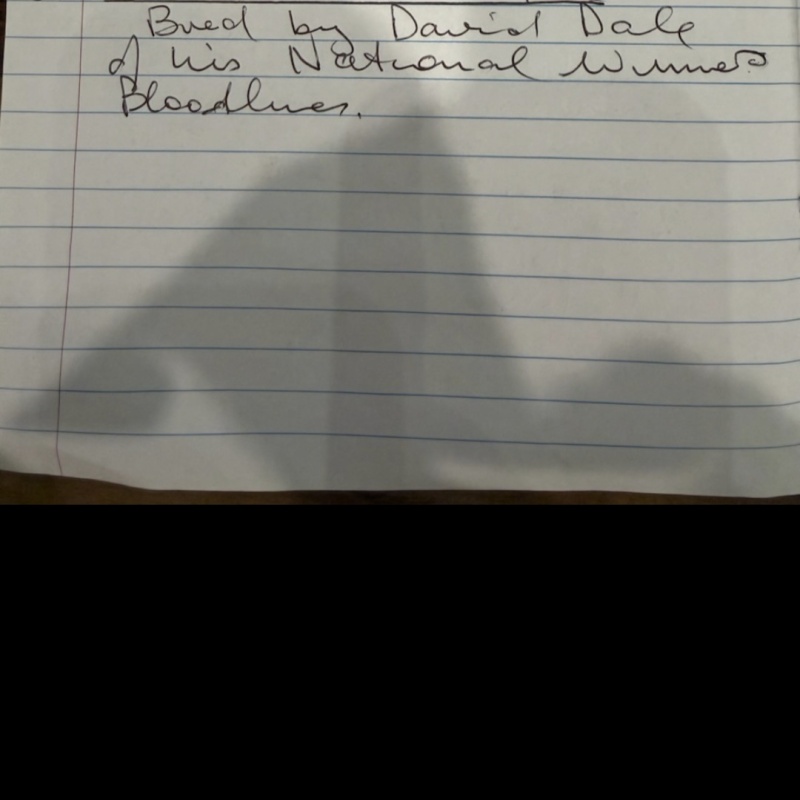 Bred by David Dale
of his National Winners
Bloodlines.